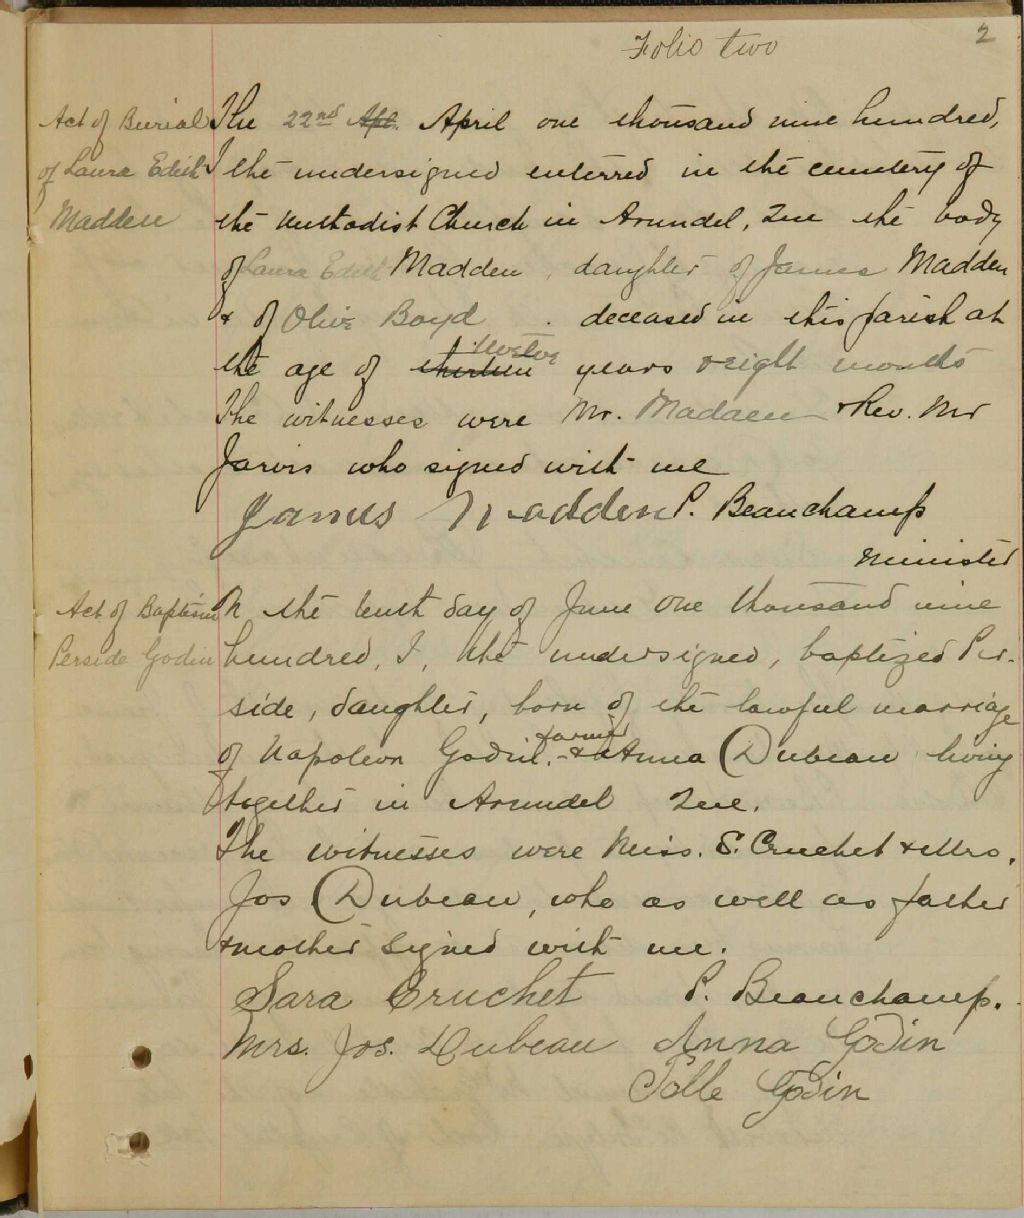 2
Folio two
Act of Burial
of Laura Edith
Madden
The 22nd Apl. April one thousand nine hundred,
I the undersigned enterred in the cemetery of
the Methodist Church in Arundel, Que the body
of Laura Edith Madden, daughter of James Madden
& of Olive Boyd. deceased in this parish at
twelve
the age of thirteen years & eight months
The witnesses were Mr. Madden & Rev. Mr
Jarvis who signed with me
James Madden P. Beauchamp
Minister
Act of Baptism
Perside Godin
On the tenth day of June one thousand nine
hundred, I, the undersigned, baptized Per-
side, daughter, born of the lawful marriage
farmer
of Napoleon Godin, & Anna Dubeau living
together in Arundel Que.
The witnesses were Miss. S. Cruchet & Mrs.
Jos Dubeau, who as well as father
& mother signed with me.
Sara Cruchet P. Beauchamp.
Mrs. Jos. Dubeau Anna Godin
Godin